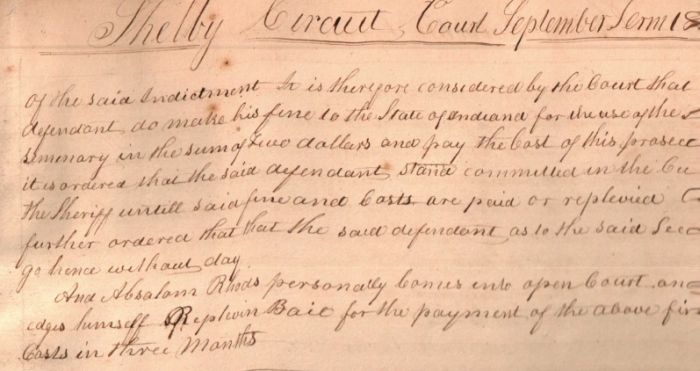 Shelby Circuit Court September Term 18
of the said Indictment It is therefore considered by the Court that
defendant do make his fine to the State of Indiana for the use of the
Seminary in the sum of two dollars and pay the Cost of this prosec
it is ordered that the said defendant stand committed in the Cu
the Sheriff untill said fine and Costs are paid or replevied
further ordered that that the said defendant as to the said Sec
go hence without day
And Absalom Rhods personally Comes into open Court and
edges himself Replevin Bail for the payment of the above fin
Costs in three Months